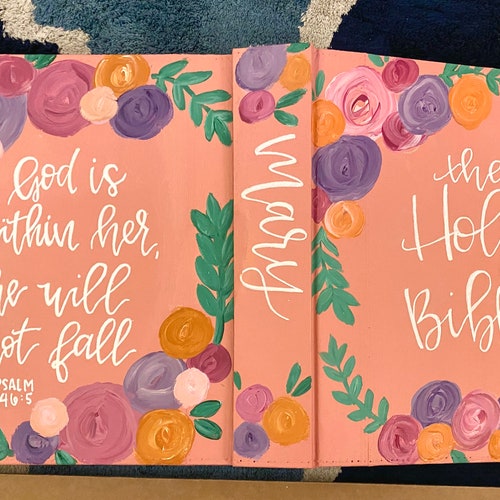 God is
within her,
he will
not fall
PSALM
46:5
Mary
the
Holy
Bible